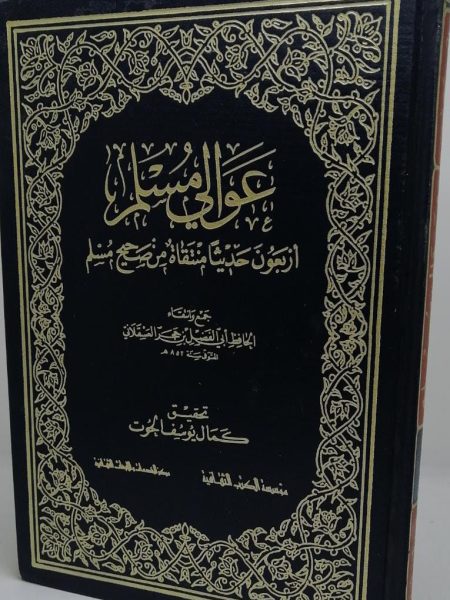 عَوَالِي مُسْلِم
أَرْبَعُونَ حَدِيثًا مُنْتَقَاةٌ مِنْ صَحِيحِ مُسْلِم
جمع وانتقاء
الحافظ أبي الفضل بن حجر العسقلاني
المتوفى سنة ٨٥٢ هـ
تحقيق
كمال يوسف الحوت
مؤسسة الكتب الثقافية مركز الخدمات والأبحاث الثقافية